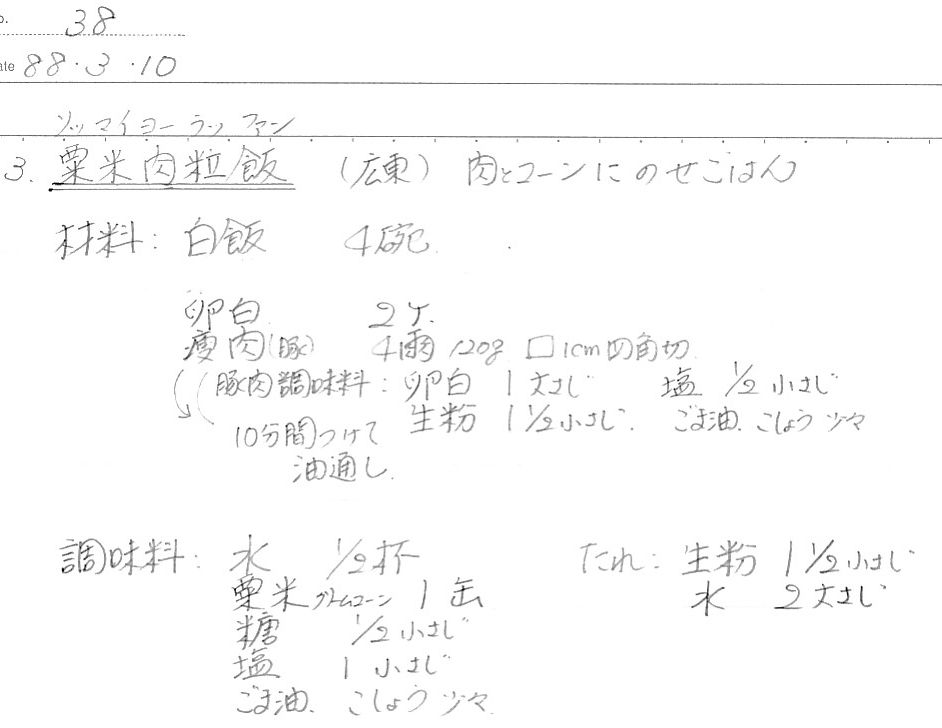 No. 38
Date 88・3・10
ソッマイヨーラッファン
3. 粟米肉粒飯 (広東) 肉とコーンにのせごはん
材料: 白飯 4碗
卵白 2ケ
瘦肉(豚) 4両 120g □1cm四角切
豚肉調味料: 卵白 1大さじ 塩 1/2小さじ
生粉 1 1/2小さじ ごま油、こしょう 少々
10分間つけて
油通し
調味料: 水 1/2杯 たれ: 生粉 1 1/2小さじ
粟米クリームコーン 1缶 水 2大さじ
糖 1/2小さじ
塩 1小さじ
ごま油、こしょう 少々